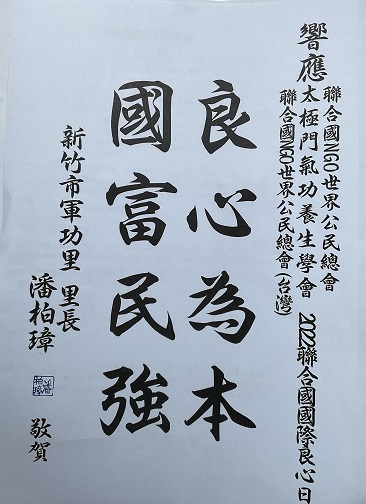 響應
聯合國NGO世界公民總會
太極門氣功養生學會
聯合國NGO世界公民總會(台灣)
2022聯合國國際良心日
良心為本
國富民強
新竹市軍功里 里長
潘柏璋
敬賀